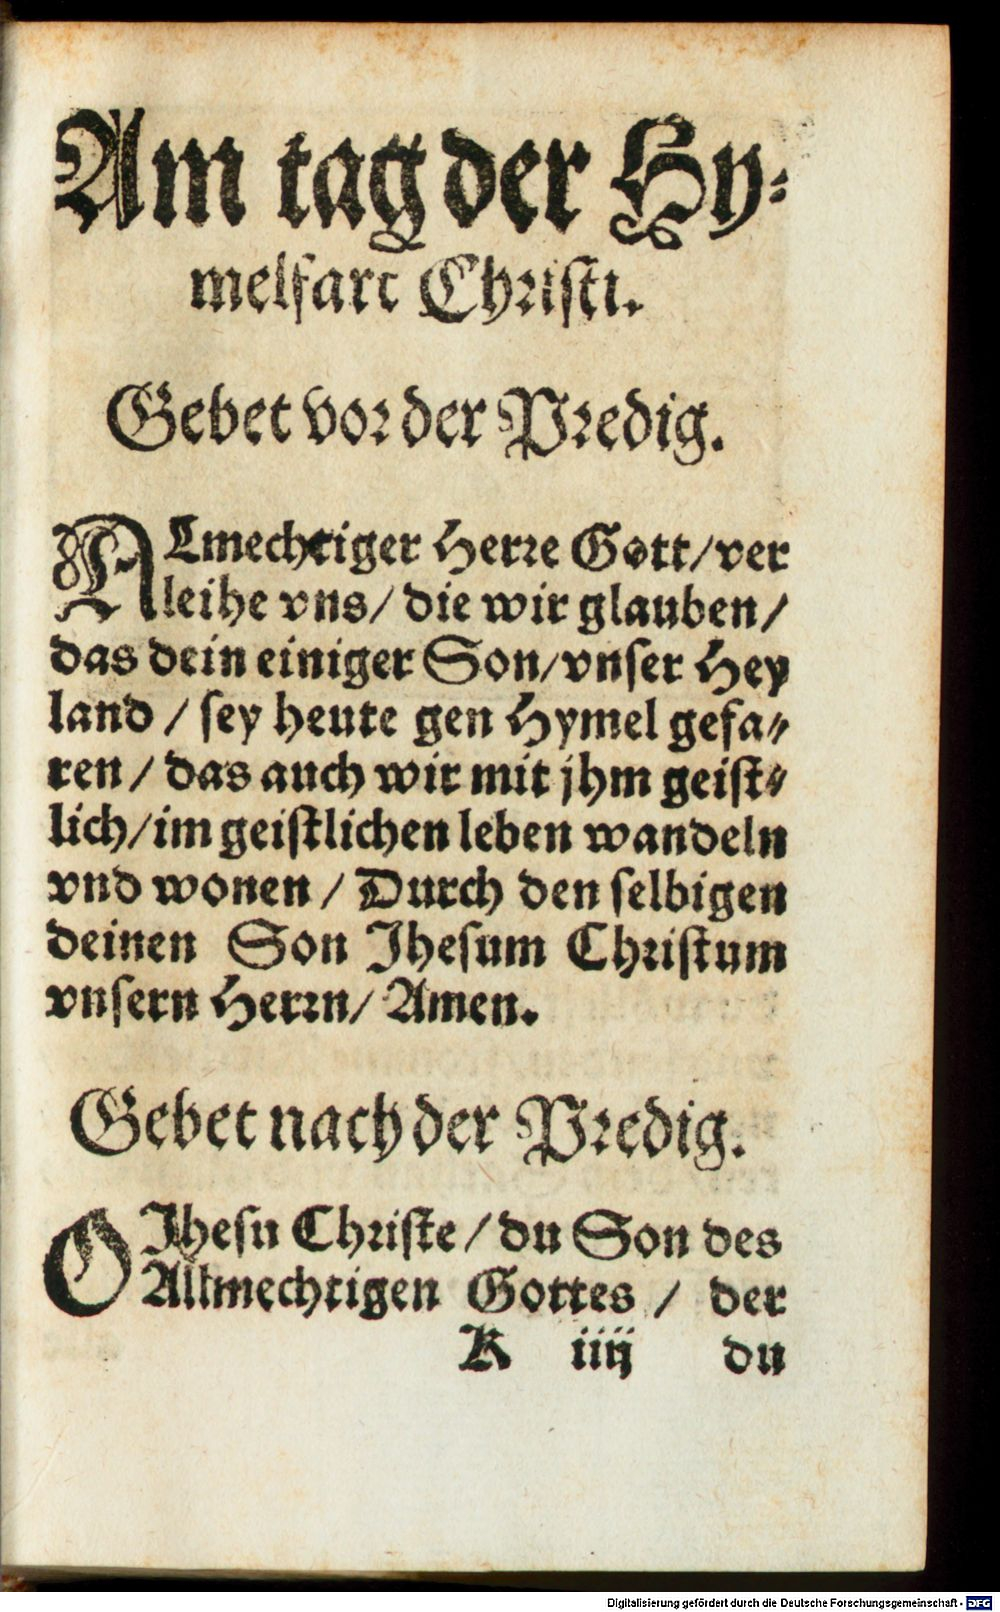 Am tag der Hy-
melfart Christi.
Gebet vor der Predig.
ALmechtiger Herre Gott/ ver
leihe vns/ die wir glauben/
das dein einiger Son/ vnser Hey
land / sey heute gen Hymel gefa-
ren / das auch wir mit jhm geist-
lich/ im geistlichen leben wandeln
vnd wonen / Durch den selbigen
deinen Son Jhesum Christum
vnsern Herrn/ Amen.
Gebet nach der Predig.
O Jhesu Christe / du Son des
Allmechtigen Gottes / der
K iiij du
Digitalisierung gefördert durch die Deutsche Forschungsgemeinschaft - DFG